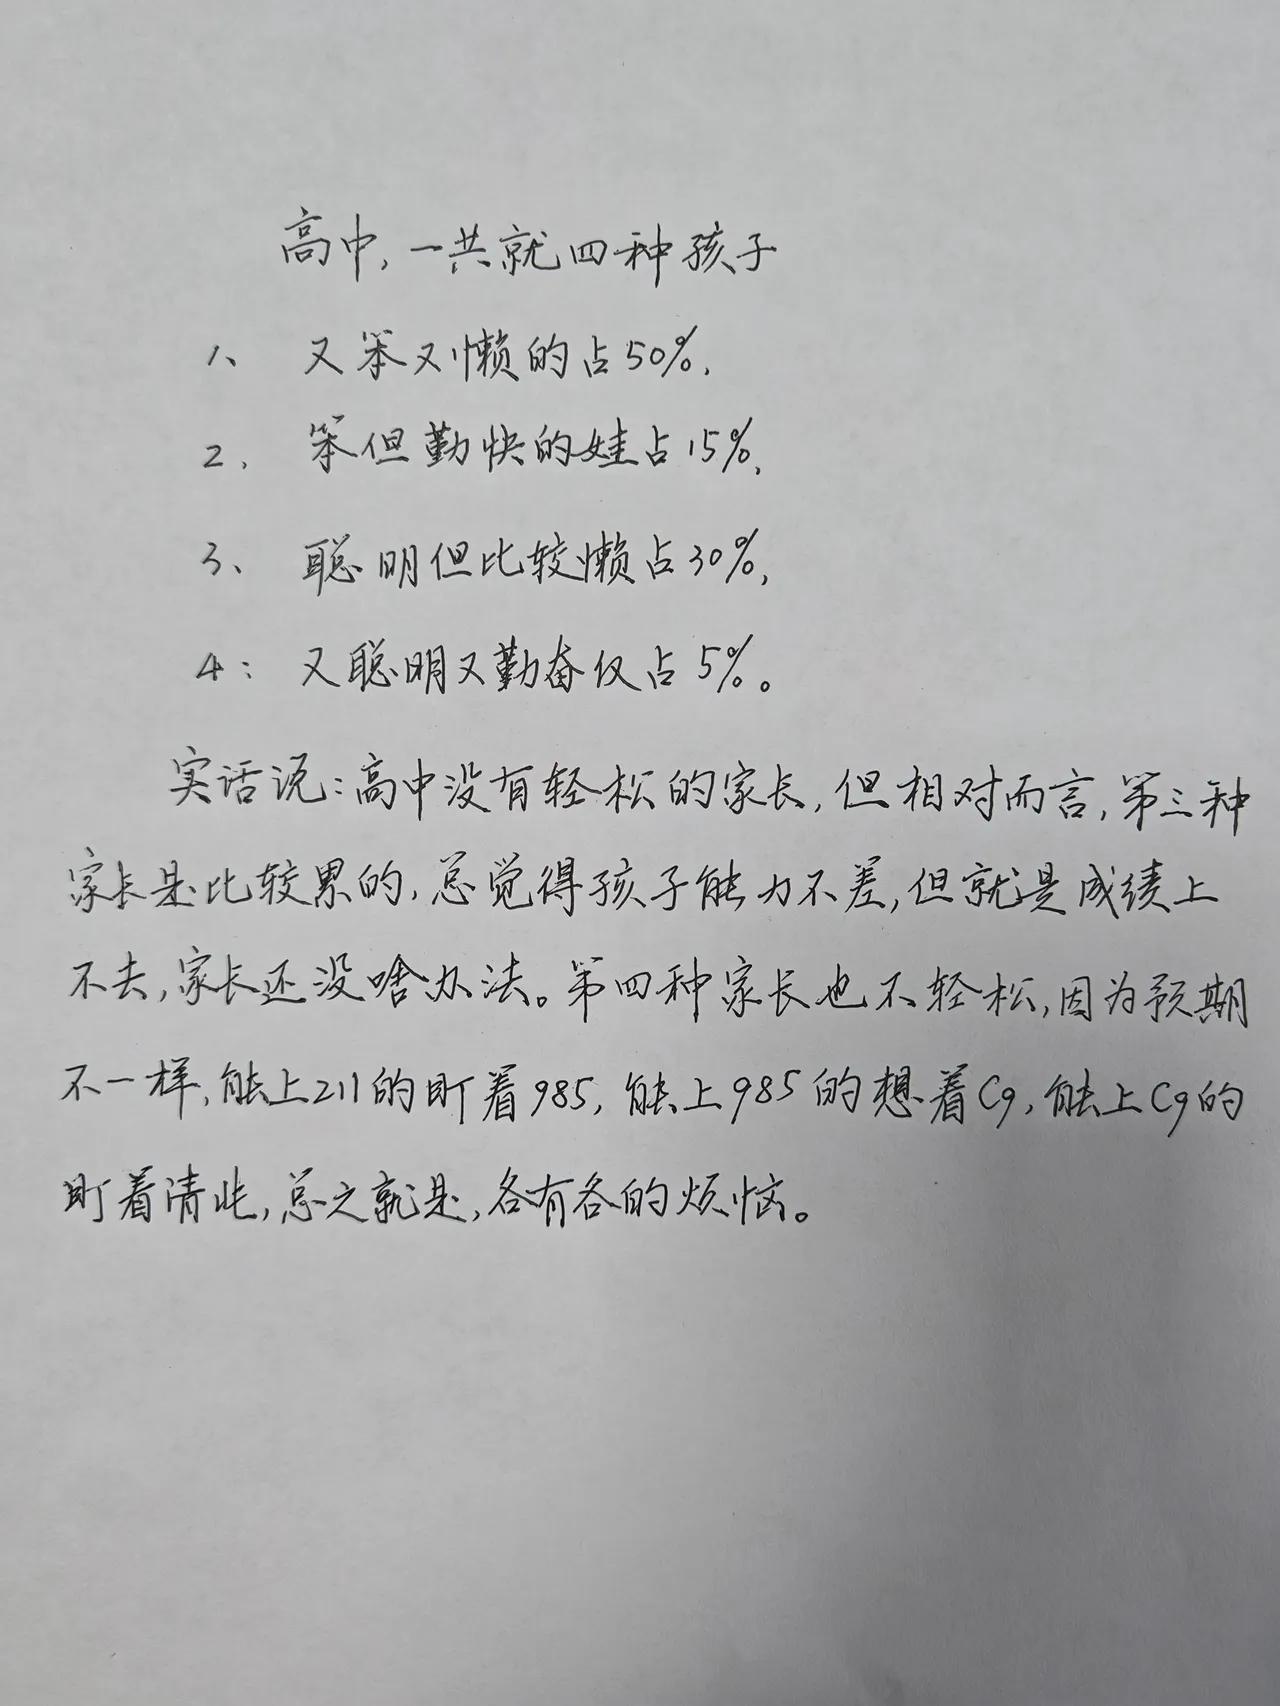 高中,一共就四种孩子
1、 又笨又懒的占50%,
2, 笨但勤快的娃占15%,
3、 聪明但比较懒占30%,
4: 又聪明又勤奋仅占5%。
实话说:高中没有轻松的家长,但相对而言,第三种
家长是比较累的,总觉得孩子能力不差,但就是成绩上
不去,家长还没啥办法。第四种家长也不轻松,因为预期
不一样,能上211的盯着985,能上985的想着C9,能上C9的
盯着清北,总之就是,各有各的烦恼。